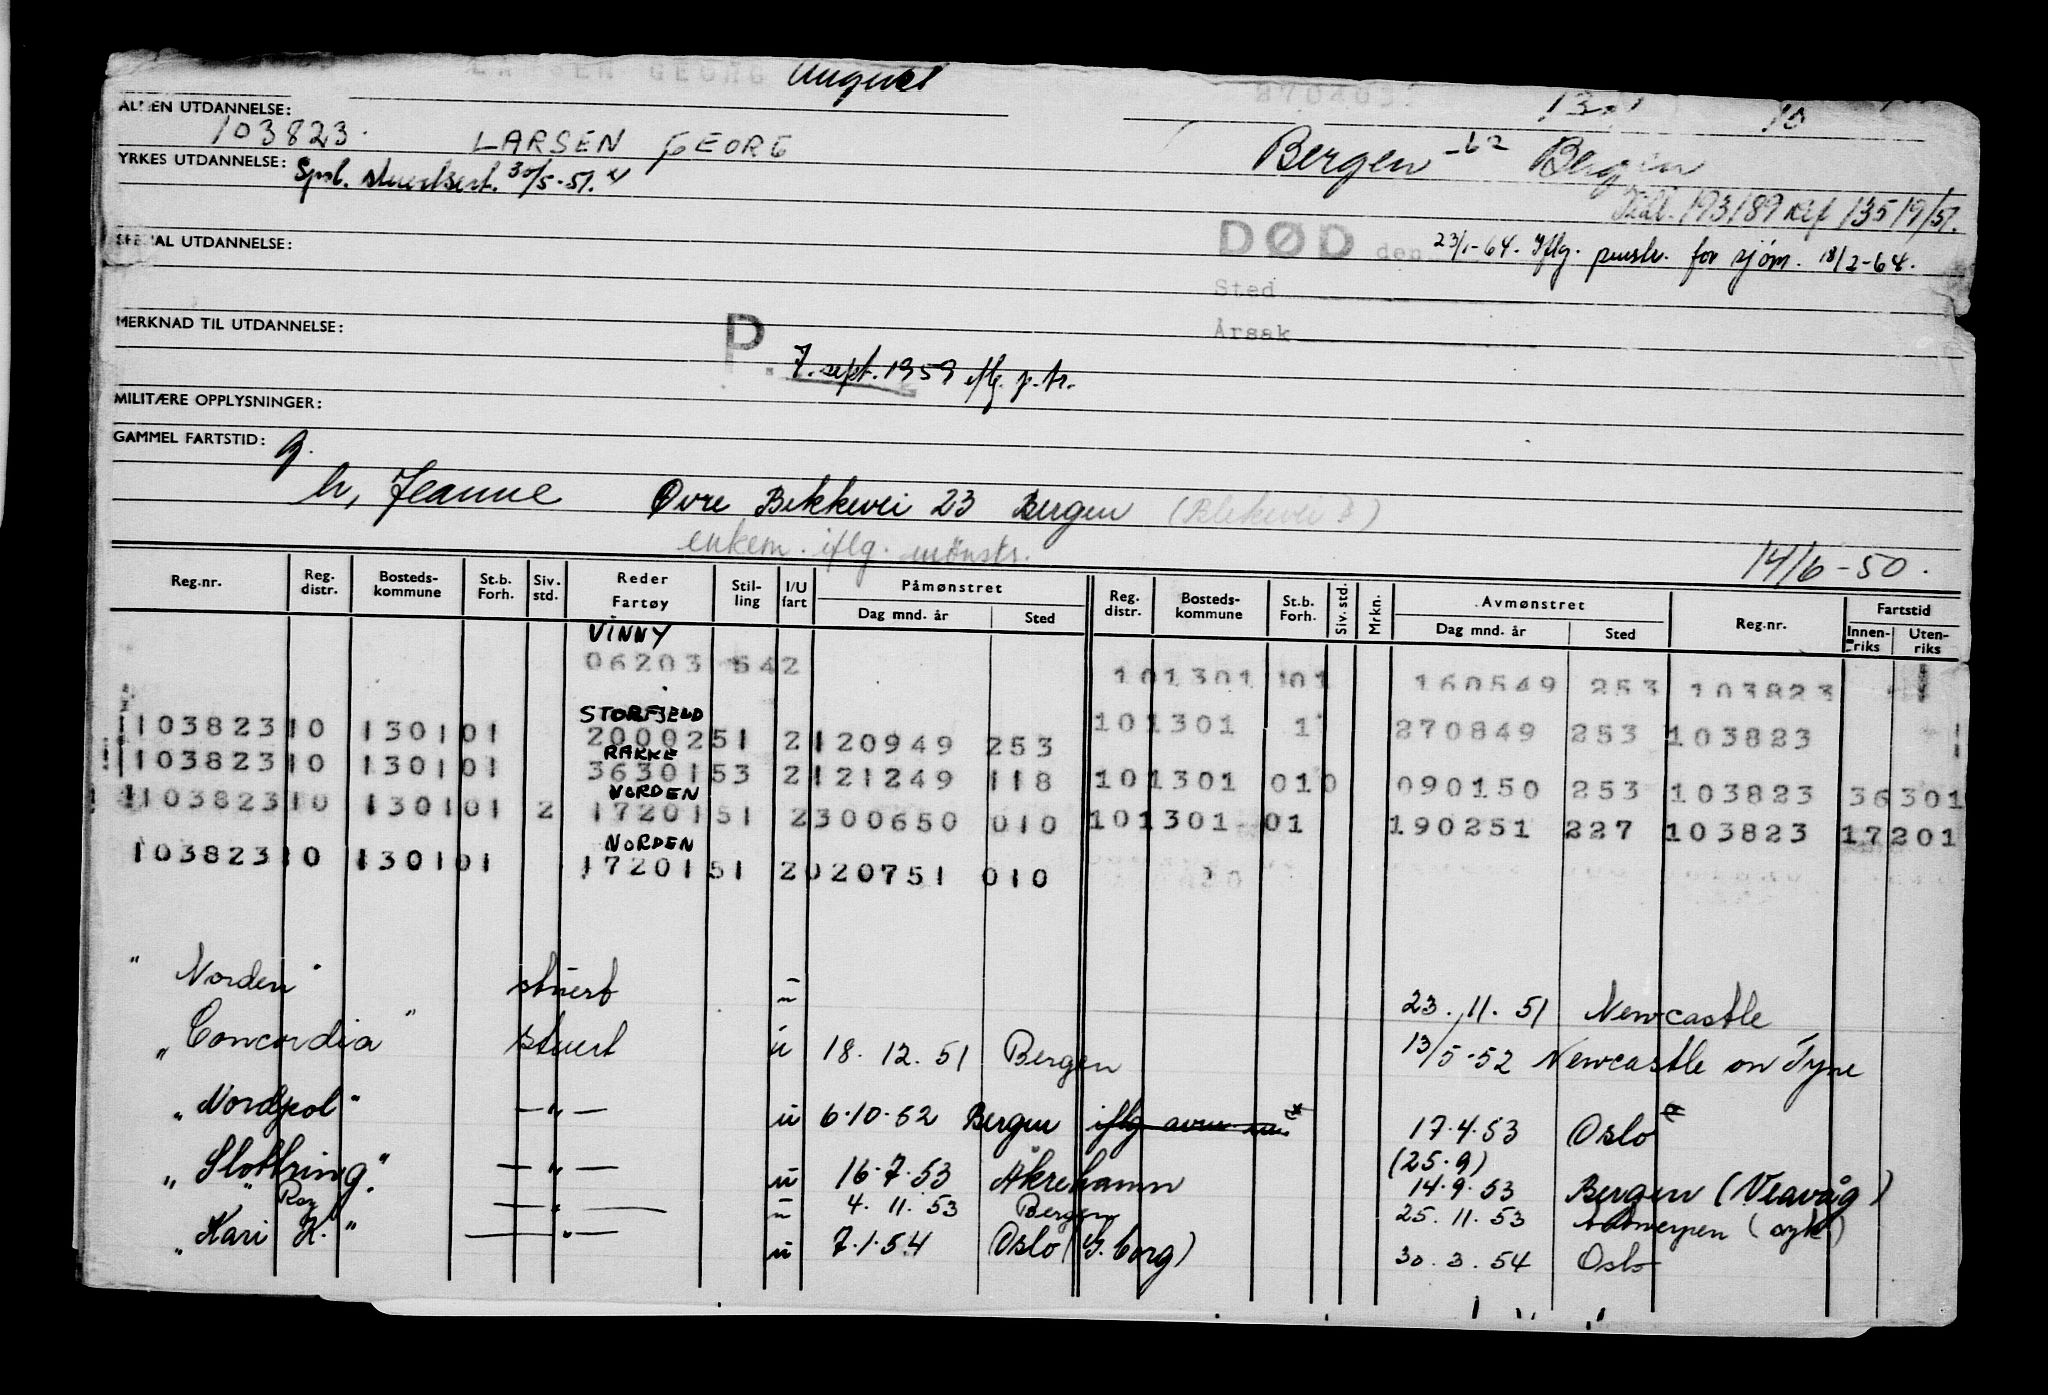 LARSEN GEORG August 870403
ALMEN UTDANNELSE:
103823. LARSEN GEORG Bergen -62 Bergen
YRKES UTDANNELSE: Spsl. stuertsert. 30/5-51. x)
Tidl. 193189 krf 13519/51.
SPESIAL UTDANNELSE: DØD den 23/1-64. Iflg. for sjøm. 18/2-64.
Sted
MERKNAD TIL UTDANNELSE: P. Årsak
7. sept. 1959 iflg. p.tr.
MILITÆRE OPPLYSNINGER:
GAMMEL FARTSTID: g.
h, Jeanne Øvre Bekkevei 23 Bergen (Blekevei ?)
enkem. iflg. mønstr. 14/6-50.
Reg.nr. Reg. distr. Bosteds-kommune St.b. Forh. Siv. std. Reder Fartøy Stil-ling I/U fart Påmønstret Dag mnd. år Sted Reg. distr. Bosteds-kommune St.b. Forh. Siv. std. Mrkn. Avmønstret Dag mnd. år Sted Reg.nr. Fartstid Innen-riks Uten-riks
VINNY
06203 542 101301 101 160549 253 103823
STORFJELD
103823 10 1301 01 20002 51 2 120949 253 101301 1 270849 253 103823
RAKKE
103823 10 1301 01 36301 53 2 121249 118 101301 010 090150 253 103823 36301
NORDEN
103823 10 1301 01 2 17201 51 2 300650 010 101301 01 190251 227 103823 17201
NORDEN
103823 10 1301 01 17201 51 2 020751 010
"Norden" stuert u 23.11.51 Newcastle
"Concordia" stuert u 18.12.51 Bergen 13/5-52 Newcastle on Tyne
"Nordpol" —"— u 6.10.52 Bergen iflg 17.4.53 Oslo
(25.9)
"Slottring" —"— u 16.7.53 Åkrehamn 14.9.53 Bergen (Veavåg)
" Ray —"— u 4.11.53 Bergen 25.11.53 Antwerpen (syk)
"Kari K." —"— u 7.1.54 Oslo (G.borg) 30.3.54 Oslo